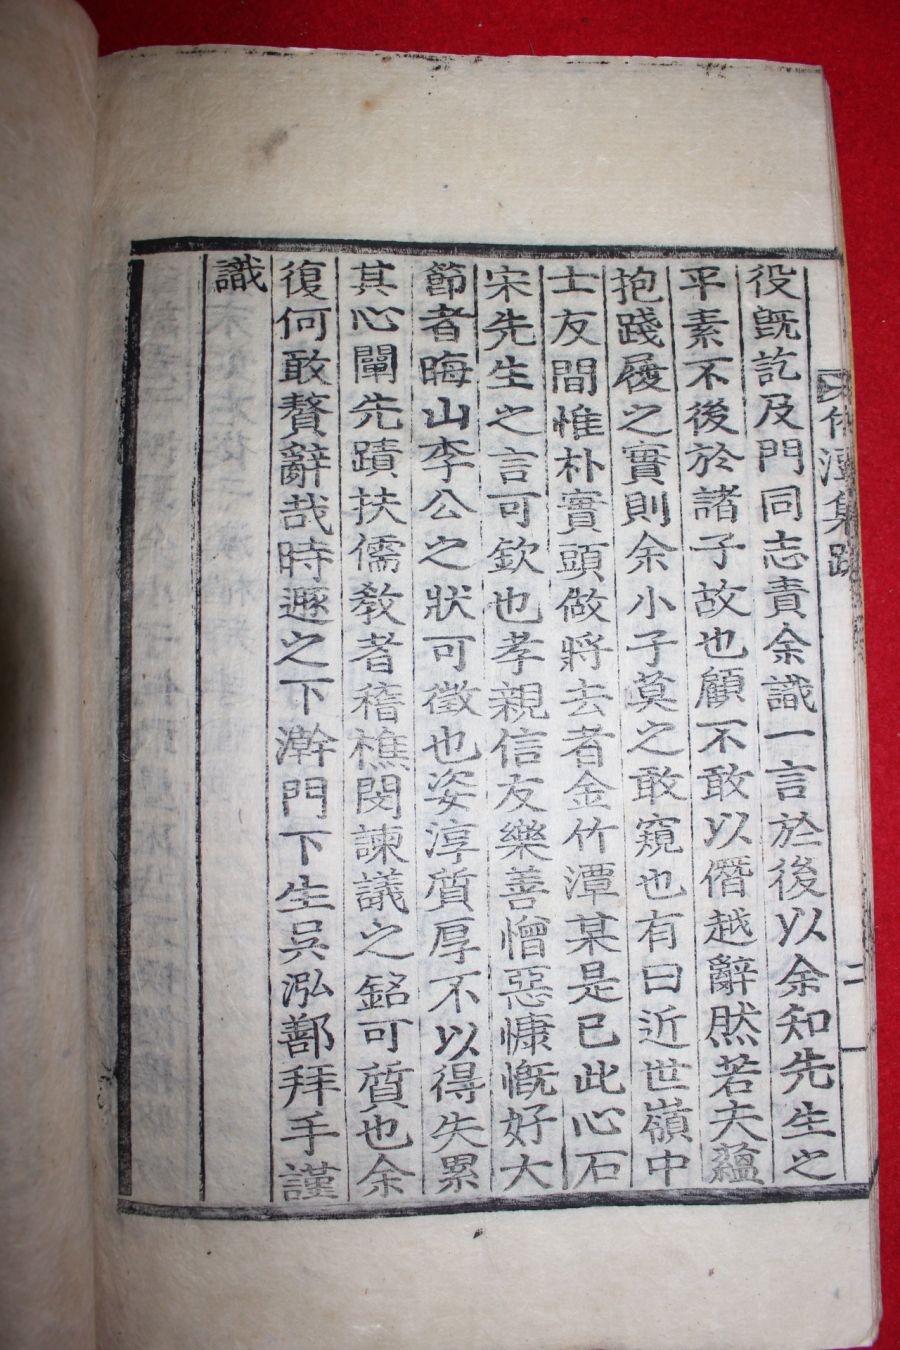 竹潭集跋
二
役旣訖及門同志責余識一言於後以余知先生之
平素不後於諸子故也顧不敢以僭越辭然若夫蘊
抱踐履之實則余小子莫之敢窺也有曰近世嶺中
士友間惟朴實頭做將去者金竹潭某是已此心石
宋先生之言可欽也孝親信友樂善憎惡慷慨好大
節者晦山李公之狀可徵也姿淳質厚不以得失累
其心闡先蹟扶儒敎者稽樵閔諫議之銘可質也余
復何敢贅辭哉時遯之下澣門下生吳泓鄯拜手謹
識